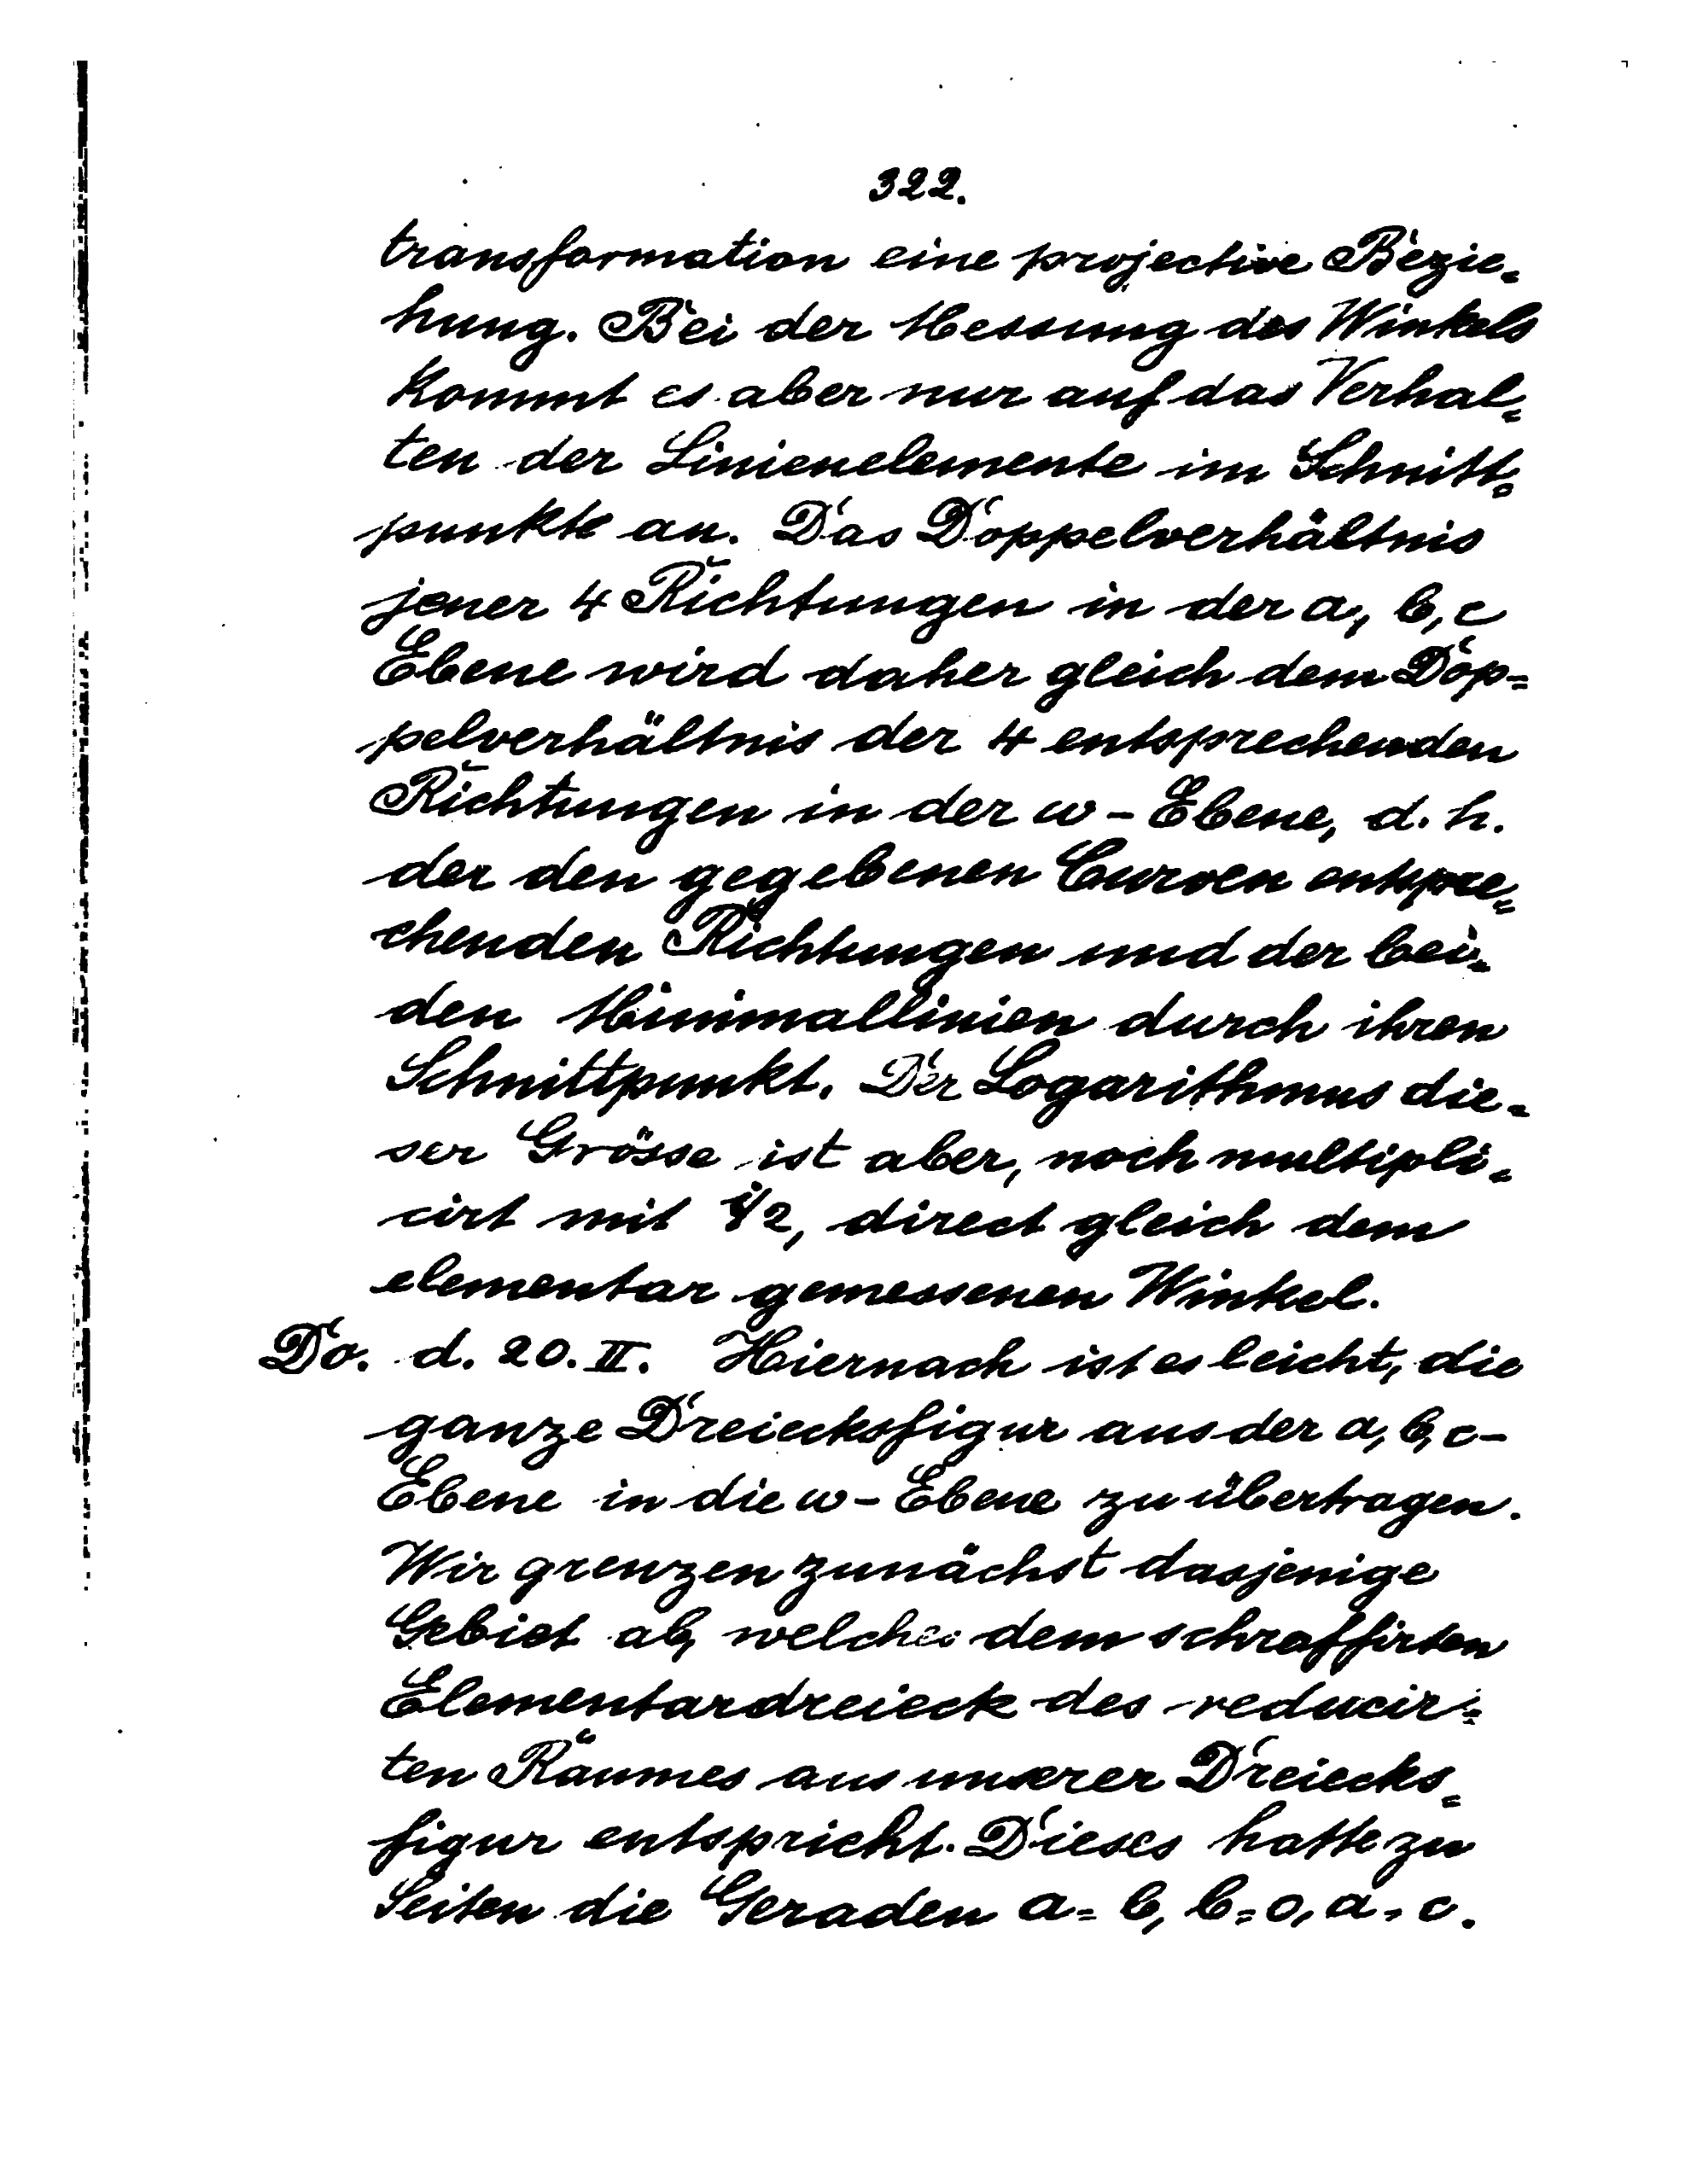 322.
transformation eine projective Bezie-
hung. Bei der Messung des Winkels
kommt es aber nur auf das Verhal-
ten der Linienelemente im Schnitt-
punkte an. Das Doppelverhältnis
jener 4 Richtungen in der a, b, c
Ebene wird daher gleich dem Dop-
pelverhältnis der 4 entsprechenden
Richtungen in der w - Ebene, d. h.
der den gegebenen Curven entspre-
chenden Richtungen und der bei-
den Minimallinien durch ihren
Schnittpunkt. Der Logarithmus die-
ser Grösse ist aber, noch multipli-
cirt mit i/2, direct gleich dem
elementar gemessenen Winkel.
Do. d. 20. II. Hiernach ist es leicht, die
ganze Dreiecksfigur aus der a, b, c-
Ebene in die w - Ebene zu übertragen.
Wir grenzen zunächst dasjenige
Gebiet ab, welches dem schraffirten
Elementardreieck des reducir-
ten Raumes aus unserer Dreiecks-
figur entspricht. Dieses hatte zu
Seiten die Geraden a = b, b = o, a = c.